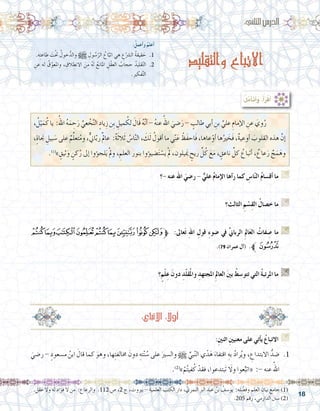 الدرس الثاني
الاتباع والتقليد
أعلم وأصل:
1. حقيقة التدين هي اتباع الرسول والدخول تحت طاعته.
2. التقليد حجاب العقل المانع له من الانطلاق، والعوق له عن التفكير.
اقرأ، وتأمل
روي عن الإمام علي بن أبي طالب - رضي الله عنه - أنه قال لكميل بن زياد النخعي رحمه الله: يا كميل،
إن هذه القلوب أوعية، فخيرها أوعاها، فاحفظ عني ما أقول لك، الناس ثلاثة: عالم رباني، ومتعلم على سبيل نجاة،
وهمج رعاع؛ أتباع كل ناعق، مع كل ريح يميلون، لم يستضيئوا بنور العلم، ولم يلجؤوا إلى ركن وثيق
ما أقسام الناس كما رآها الإمام علي - رضي الله عنه -؟
ما خصال القسم الثالث؟
ما صفات العالم الرباني في ضوء قول الله تعالى: ﴿ وَلَٰكِن كُونُوا رَبَّانِيِّينَ بِمَا كُنتُمْ تُعَلِّمُونَ الْكِتَابَ وَبِمَا كُنتُمْ
تَدْرُسُونَ ﴾. (آل عمران 79).
ما المرتبة التي تتوسط بين العالم المجتهد والمقلد دون علم؟
أولا: الاتباع
الاتباع يأتي على معنيين اثنين:
1. ضد الابتداع، ويراد به اقتفاء هدي النبي ﷺ والسير على سنته دون مخالفتها، وهو كما قال ابن مسعود - رضي
الله عنه -: «اتبعوا ولا تبتدعوا، فقد كفيتم»(2).
(1) جامع بيان العلم وفضله: يوسف بن عبد البر النمري، دار الكتب العلمية - بيروت، ج 2، ص 112. والرعاع:
(2) سنن الدارمي، رقم 205.
18